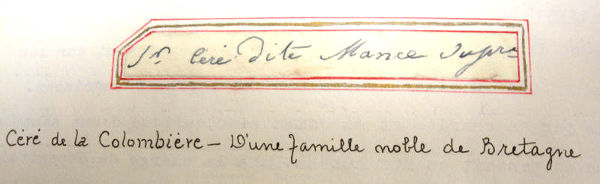 Sr Céré dite Mance Supre
Céré de la Colombière — D'une famille noble de Bretagne